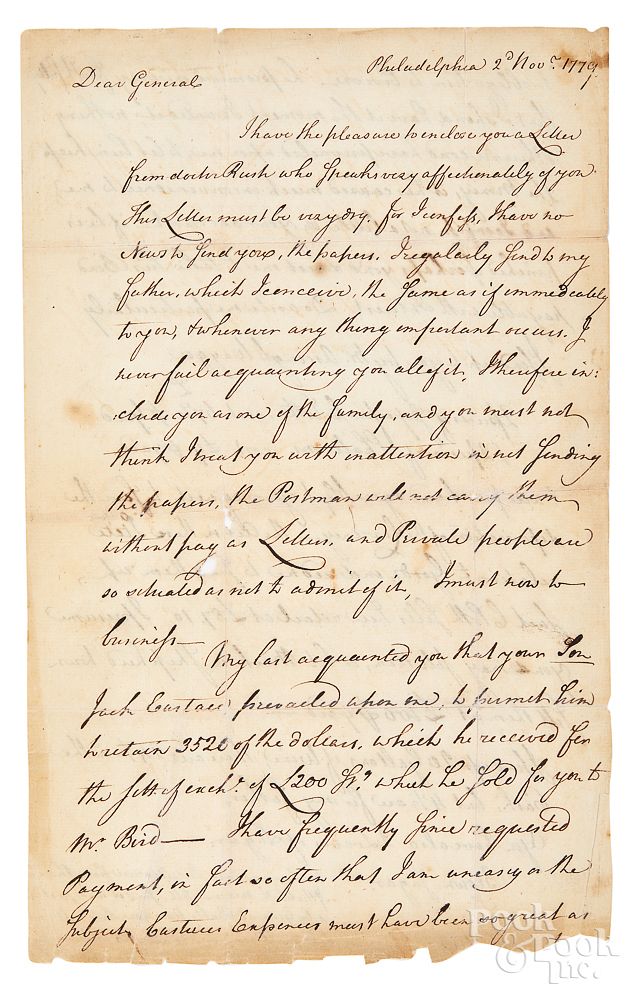 Philadelphia 2d Novr. 1779
Dear General
I have the pleasure to enclose you a Letter
from doctor Rush who speaks very affectionately of you.
This Letter must be very dry, for I confess, I have no
News to send you, the papers, I regularly send to my
father, which I conceive, the same as if immediately
to you, & whenever any thing important occurs. I
never fail acquainting you all of it, I therefore in:
:clude you as one of the family, and you must not
think I treat you with inattention in not sending
the papers, the Postman will not carry them
without pay as Letters, and Private people are
so situated as not to admit of it, I must now to
business—
My last acquainted you that your Son
Jack Eustace prevailed upon me, to permit him
to retain 3520 of the dollars, which he received for
the sett of exche. of £200 which he sold for you to
Mr. Bird— I have frequently since requested
Payment, in fact so often that I am uneasy on the
Subject Eustaces Expences must have been so great as
Pook
& Pook
Inc.